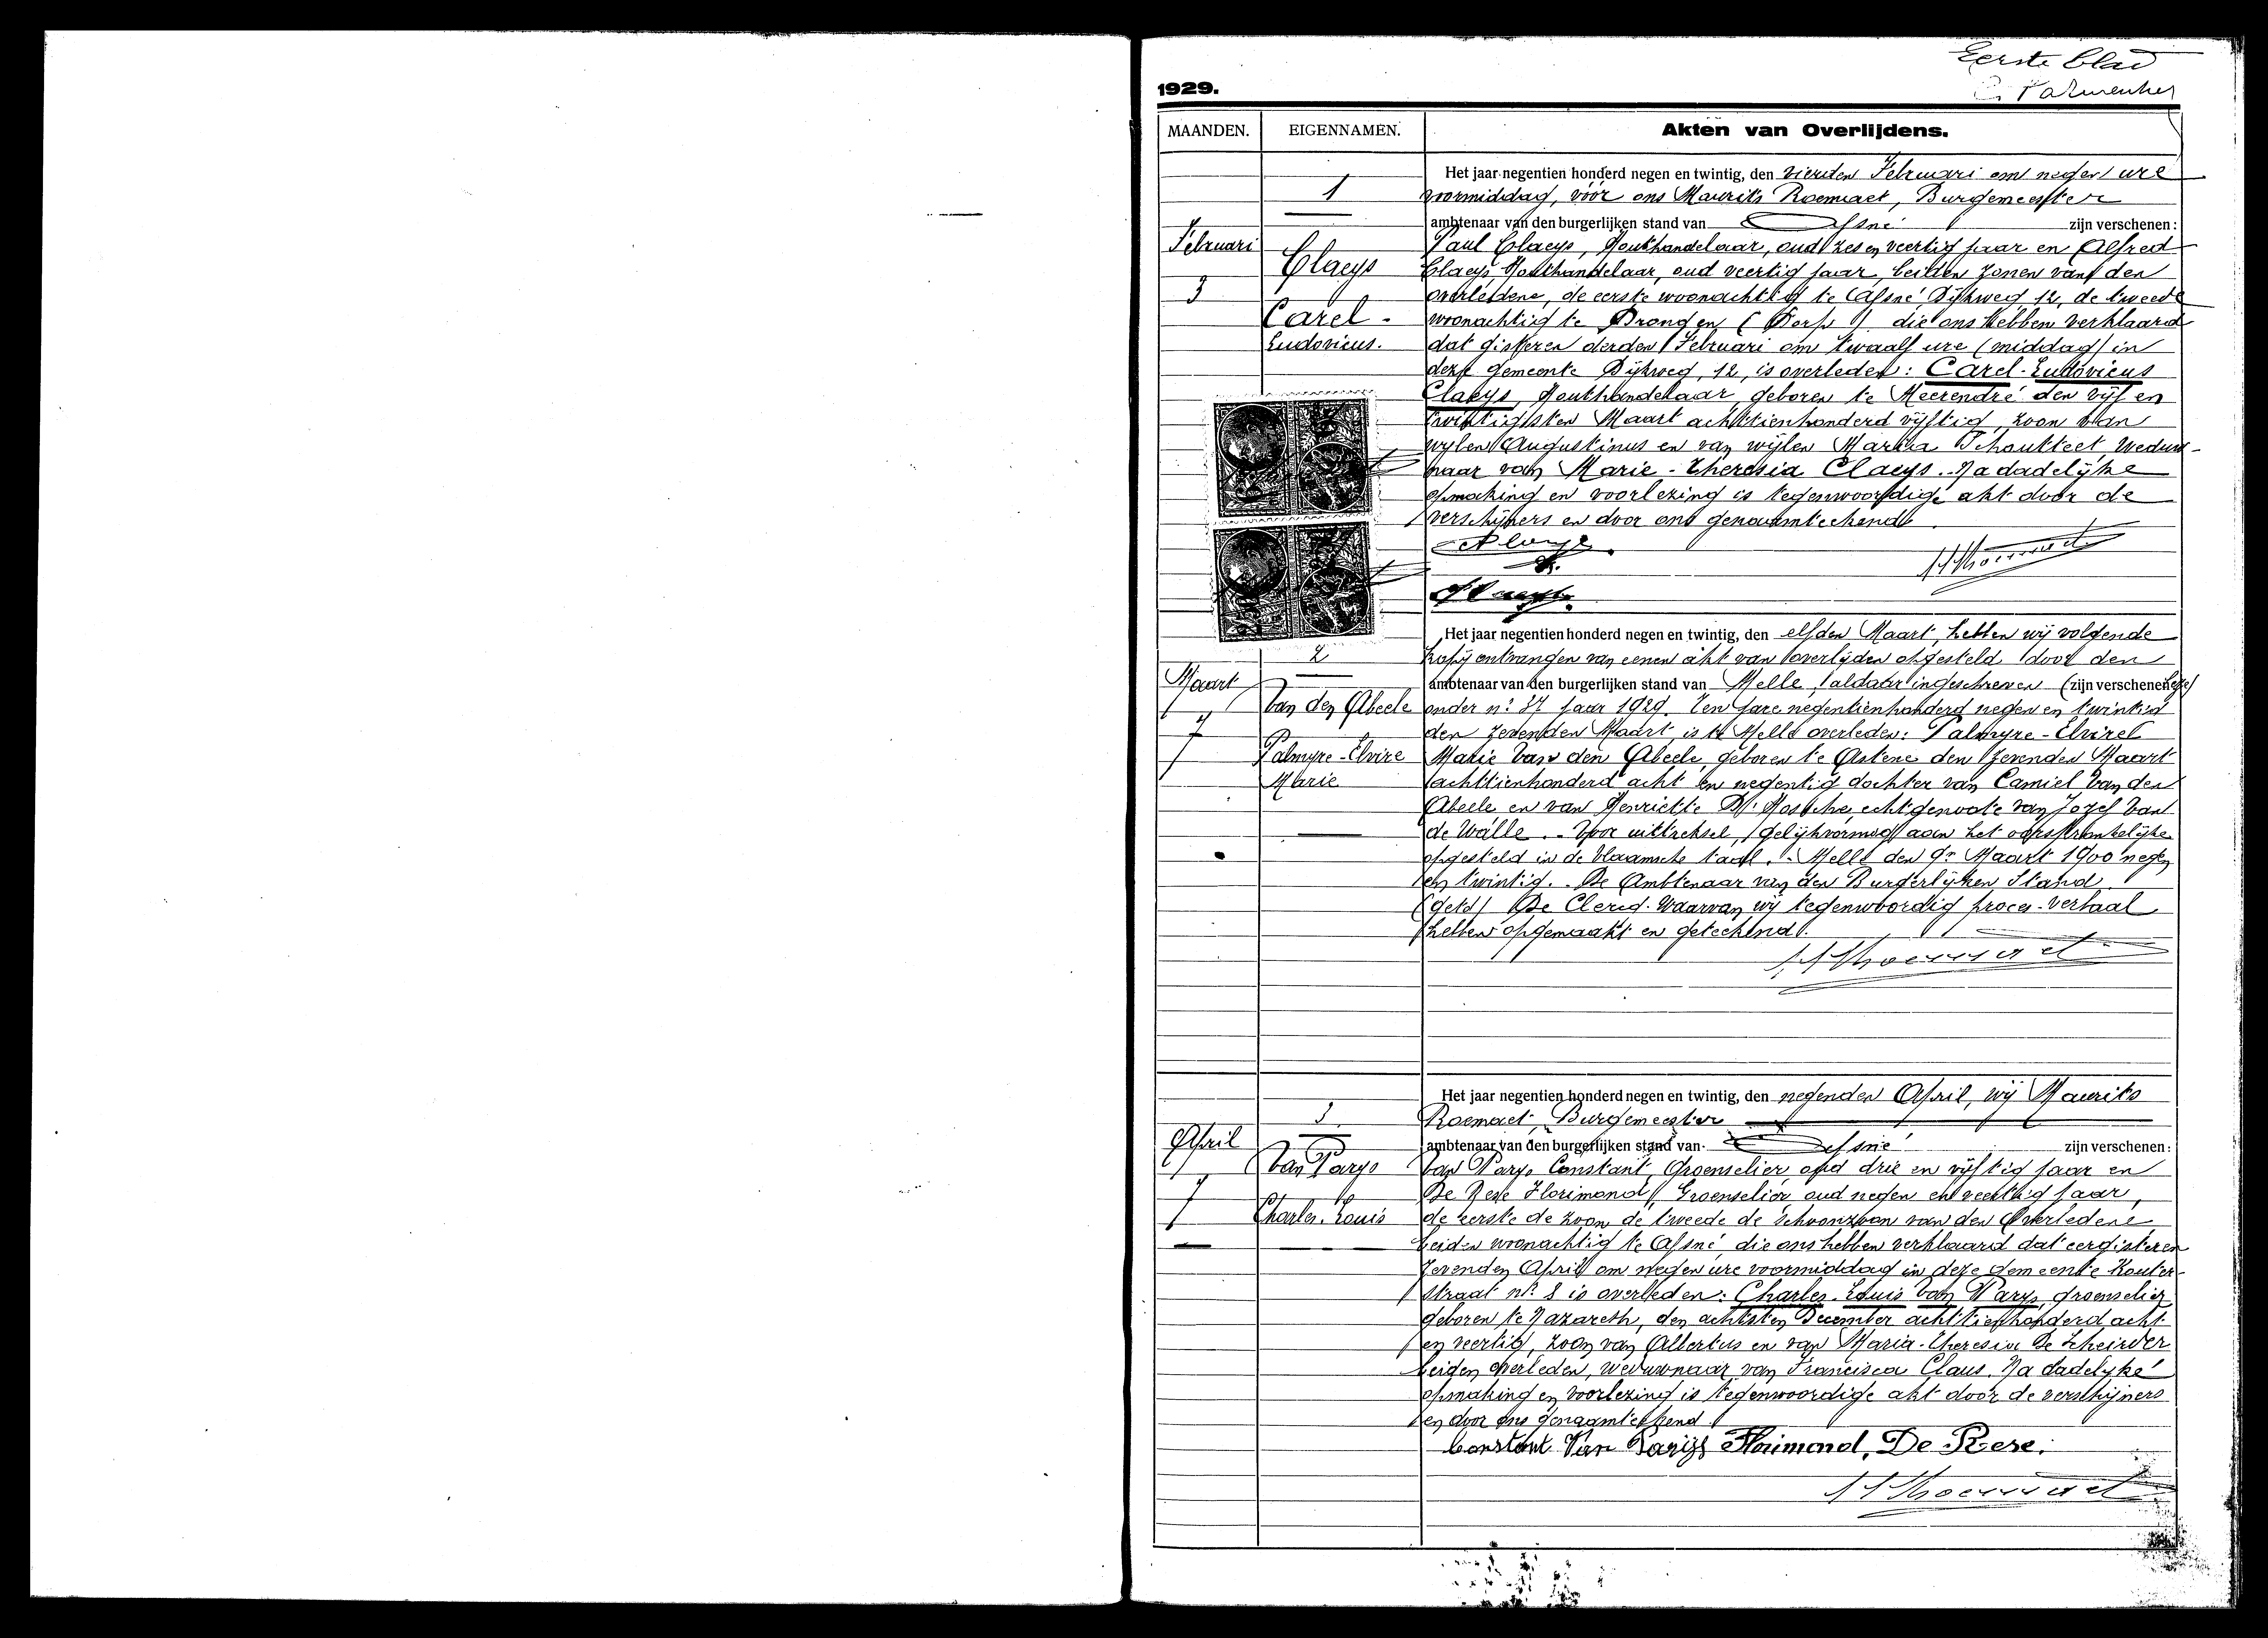 Eerste blad
1929.
MAANDEN. EIGENNAMEN. Akten van Overlijdens.
1
Februari
3
Claeys
Carel-
Ludovicus.
Het jaar negentien honderd negen en twintig, den vierden Februari om negen ure
voormiddag, vóór ons Maurits Roemaet, Burgemeester
ambtenaar van den burgerlijken stand van Afsné zijn verschenen:
Paul Claeys, Houthandelaar, oud zes en veertig jaar en Alfred
Claeys Houthandelaar, oud veertig jaar, beiden zonen van den
overledene, de eerste woonachtig te Afsné Dijkweg, 12, de tweede
woonachtig te Drongen (Dorp) die ons hebben verklaard
dat gisteren derden Februari om twaalf ure (middag) in
deze gemeente Dijkweg, 12, is overleden: Carel-Ludovicus
Claeys, Houthandelaar, geboren te Meerendré den vijf en
twintigsten Maart achttienhonderd vijftig, zoon van
wijlen Augustinus en van wijlen Maria Schoutteet, weduw-
naar van Marie-Theresia Claeys. Na dadelijke
opmaking en voorlezing is tegenwoordige akt door de
verschijners en door ons genaamteekend
2
Maart
7
Van den Abeele
Palmyre-Elvire
Marie
Het jaar negentien honderd negen en twintig, den elfden Maart, hebben wij volgende
kopij ontvangen van eenen akt van overlijden opgesteld door den
ambtenaar van den burgerlijken stand van Melle, aldaar ingeschreven (zijn verschenen:
onder n° 37 jaar 1929. Ten jare negentienhonderd negen en twintig
den zevenden Maart, is te Melle overleden: Palmyre-Elvire
Marie Van den Abeele, geboren te Astene den zevenden Maart
achttienhonderd acht en negentig dochter van Camiel Van den
Abeele en van Henriette echtgenoote van Jozef Van
de Walle. - Voor uittreksel, gelijkvormig aan het oorspronkelijke
opgesteld in de Vlaamsche taal. - Melle den 9n Maart 1900 negen
en twintig. De Ambtenaar van den Burgerlijken Stand.
(getd) De Clercq. Waarvan wij tegenwoordig proces-verbaal
hebben opgemaakt en geteekend.
3
April
7
Van Parys
Charles-Louis
Het jaar negentien honderd negen en twintig, den negenden April, wij Maurits
Roemaet, Burgemeester
ambtenaar van den burgerlijken stand van Afsné zijn verschenen:
Van Parys Constant, Groenselier, oud drie en vijftig jaar en
De Rese Florimond, Groenselier oud negen en veertig jaar,
de eerste de zoon de tweede de schoonzoon van den Overledene
beiden woonachtig te Afsné, die ons hebben verklaard dat eergisteren
zevenden April om negen ure voormiddag in deze gemeente Kouter-
straat n° 8 is overleden: Charles-Louis Van Parys, groenselier
geboren te Nazareth, den achtsten December achttienhonderd acht
en veertig, zoon van Albertus en van Maria-Theresia De
beiden overleden, weduwnaar van Francisca Claus. Na dadelijke
opmaking en voorlezing is tegenwoordige akt door de verschijners
en door ons genaamteekend.
Constant Van Parijs Florimond, De Rese.